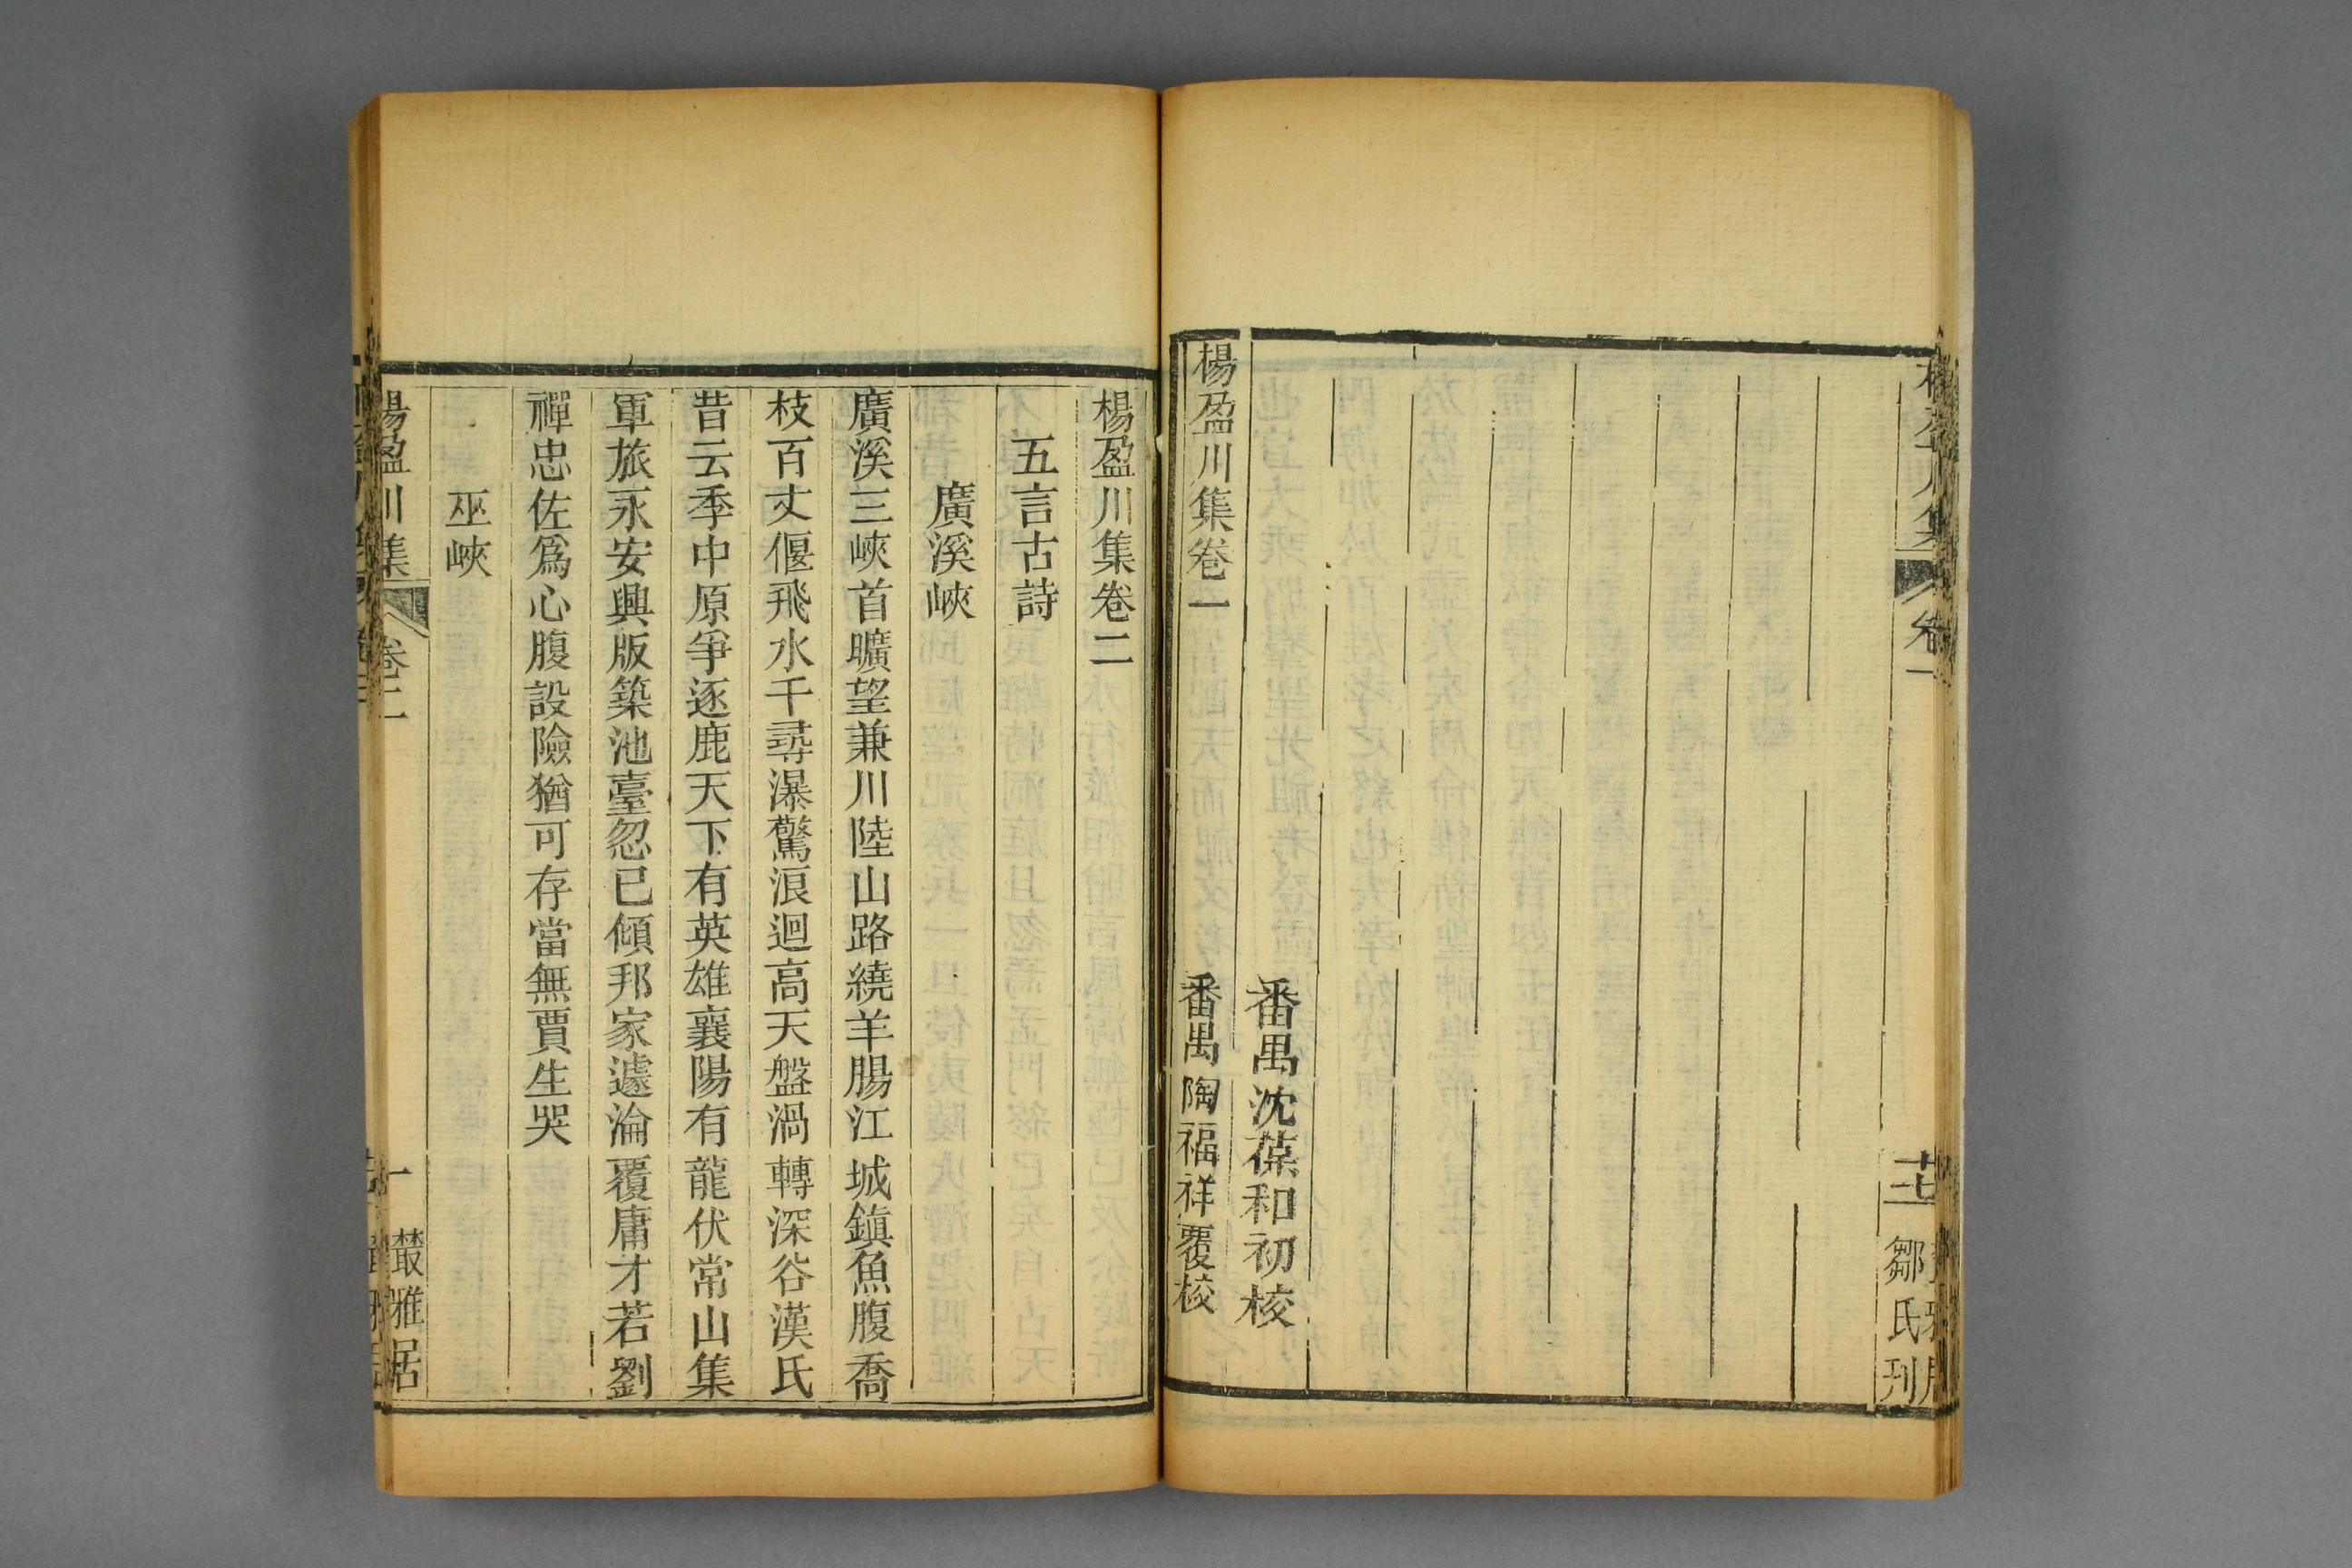 番禺沈葆和初校
番禺陶福祥覆校
楊盈川集卷一
鄒氏刊
楊盈川集卷二
五言古詩
廣溪峽
廣溪三峽首曠望兼川陸山路繞羊腸江城鎮魚腹喬
枝百丈偃飛水千尋瀑驚浪迴高天盤渦轉深谷漢氏
昔云季中原爭逐鹿天下有英雄襄陽有龍伏常山集
軍旅永安興版築池臺忽已傾邦家遽淪覆庸才若劉
禪忠佐爲心腹設險猶可存當無賈生哭
巫峽
楊盈川集
卷二
一
菆雅居